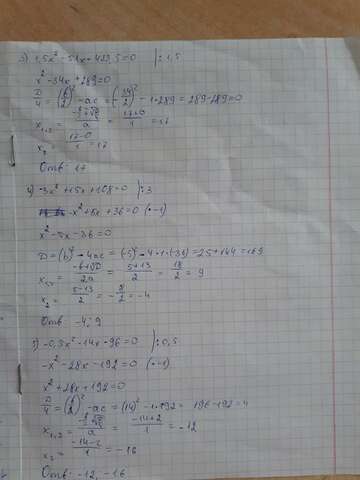 3) 1,5x² - 51x + 433,5 = 0 | : 1,5
x² - 34x + 289 = 0
D/4 = (b/2)² - ac = (34/2)² - 1·289 = 289 - 289 = 0
x₁,₂ = (-b/2 ± √D)/a = (17+0)/1 = 17
x₂ = (17-0)/1 = 17
Отв: 17
4) -3x² + 15x + 108 = 0 | : 3
-x² + 5x + 36 = 0 (· -1)
x² - 5x - 36 = 0
D = (b)² - 4ac = (-5)² - 4·1·(-36) = 25 + 144 = 169
x₁,₂ = (-b±√D)/2a = (5+13)/2 = 18/2 = 9
x₂ = (5-13)/2 = -8/2 = -4
Отв: -4; 9
5) -0,5x² - 14x - 96 = 0 | : 0,5
-x² - 28x - 192 = 0 (· -1)
x² + 28x + 192 = 0
D/4 = (b/2)² - ac = (14)² - 1·192 = 196 - 192 = 4
x₁,₂ = (-b/2 ± √D)/a = (-14+2)/1 = -12
x₂ = (-14-2)/1 = -16
Отв: -12, -16